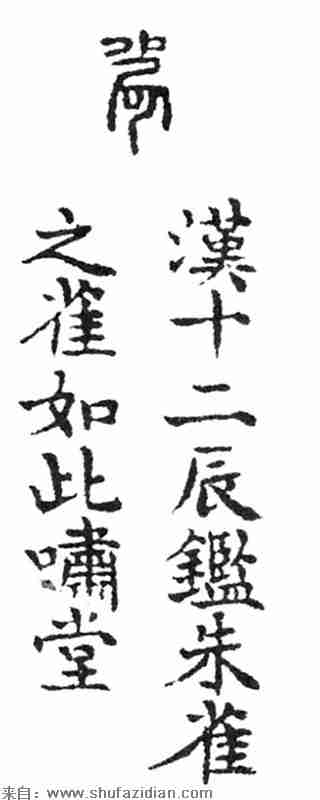 漢十二辰鑑朱雀
之雀如此嘯堂
来自：www.shufazidian.com